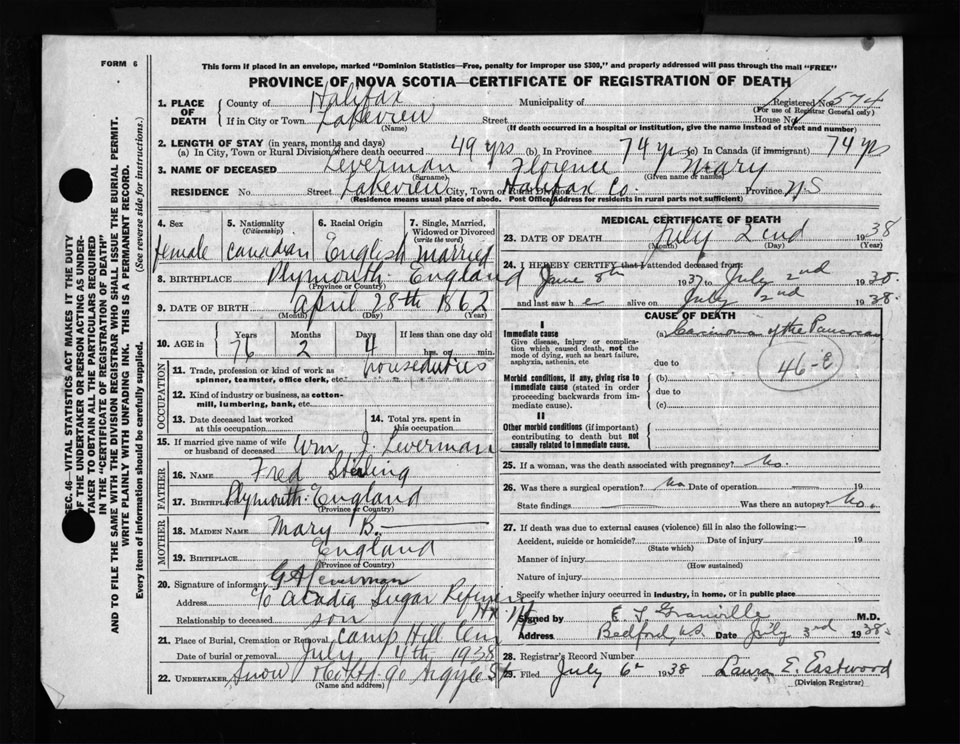 FORM 6
This form if placed in an envelope, marked "Dominion Statistics—Free, penalty for improper use $300," and properly addressed will pass through the mail "FREE"
PROVINCE OF NOVA SCOTIA—CERTIFICATE OF REGISTRATION OF DEATH
SEC. 46—VITAL STATISTICS ACT MAKES IT THE DUTY
OF THE UNDERTAKER OR PERSON ACTING AS UNDER-
TAKER TO OBTAIN ALL THE PARTICULARS REQUIRED
IN THE "CERTIFICATE OF REGISTRATION OF DEATH"
AND TO FILE THE SAME WITH THE DIVISION REGISTRAR WHO SHALL ISSUE THE BURIAL PERMIT.
WRITE PLAINLY WITH UNFADING INK. THIS IS A PERMANENT RECORD.
Every item of information should be carefully supplied. (See reverse side for instructions.)
1. PLACE OF DEATH County of Halifax Municipality of Registered No. 1574
(For use of Registrar General only)
If in City or Town Lakeview Street House No.
(Name) (If death occurred in a hospital or institution, give the name instead of street and number)
2. LENGTH OF STAY (in years, months and days)
(a) In City, Town or Rural Division where death occurred 49 yrs (b) In Province 74 yrs (c) In Canada (if immigrant) 74 yrs
3. NAME OF DECEASED Leverman Florence Mary
(Surname) (Given name or names)
RESIDENCE No. Street Lakeview City, Town or Rural Division Halifax Co. Province N.S
(Residence means usual place of abode. Post Office Address for residents in rural parts not sufficient)
4. Sex female
5. Nationality (Citizenship) Canadian
6. Racial Origin English
7. Single, Married, Widowed or Divorced (write the word) married
8. BIRTHPLACE Plymouth England
(Province or Country)
9. DATE OF BIRTH April 28th 1862
(Month) (Day) (Year)
10. AGE in Years 76 Months 2 Days 4 If less than one day old hrs. or min.
OCCUPATION
11. Trade, profession or kind of work as spinner, teamster, office clerk, etc. houseduties
12. Kind of industry or business, as cotton-mill, lumbering, bank, etc.
13. Date deceased last worked at this occupation
14. Total yrs. spent in this occupation
15. If married give name of wife or husband of deceased Wm J. Leverman
FATHER
16. NAME Fred Sterling
17. BIRTHPLACE Plymouth England
(Province or Country)
MOTHER
18. MAIDEN NAME Mary B.
19. BIRTHPLACE England
(Province or Country)
20. Signature of informant G A Leverman
Address c/o Acadia Sugar Refinery Hx.
Relationship to deceased son
21. Place of Burial, Cremation or Removal Camp Hill Cem
Date of burial or removal July 4th 1938
22. UNDERTAKER Snow & Co Ltd 90 Argyle St
(Name and address)
MEDICAL CERTIFICATE OF DEATH
23. DATE OF DEATH July 2nd 1938
(Month) (Day) (Year)
24. I HEREBY CERTIFY that I attended deceased from:
June 8th 1937 to July 2nd 1938
and last saw her alive on July 2nd 1938.
CAUSE OF DEATH
I
Immediate cause
Give disease, injury or complication which caused death, not the mode of dying, such as heart failure, asphyxia, asthenia, etc
(a) Carcinoma of the Pancreas
46-E
due to
Morbid conditions, if any, giving rise to immediate cause (stated in order proceeding backwards from immediate cause).
(b)
due to
(c)
II
Other morbid conditions (if important) contributing to death but not causally related to immediate cause.
25. If a woman, was the death associated with pregnancy? No.
26. Was there a surgical operation? No Date of operation 19
State findings Was there an autopsy? No.
27. If death was due to external causes (violence) fill in also the following:—
Accident, suicide or homicide? Date of injury 19
(State which)
Manner of injury
(How sustained)
Nature of injury
Specify whether injury occurred in industry, in home, or in public place
Signed by E T Granville M.D.
Address Bedford N.S. Date July 3rd 1938.
28. Registrar's Record Number
29. Filed July 6th 1938 Laura E. Eastwood
(Division Registrar)